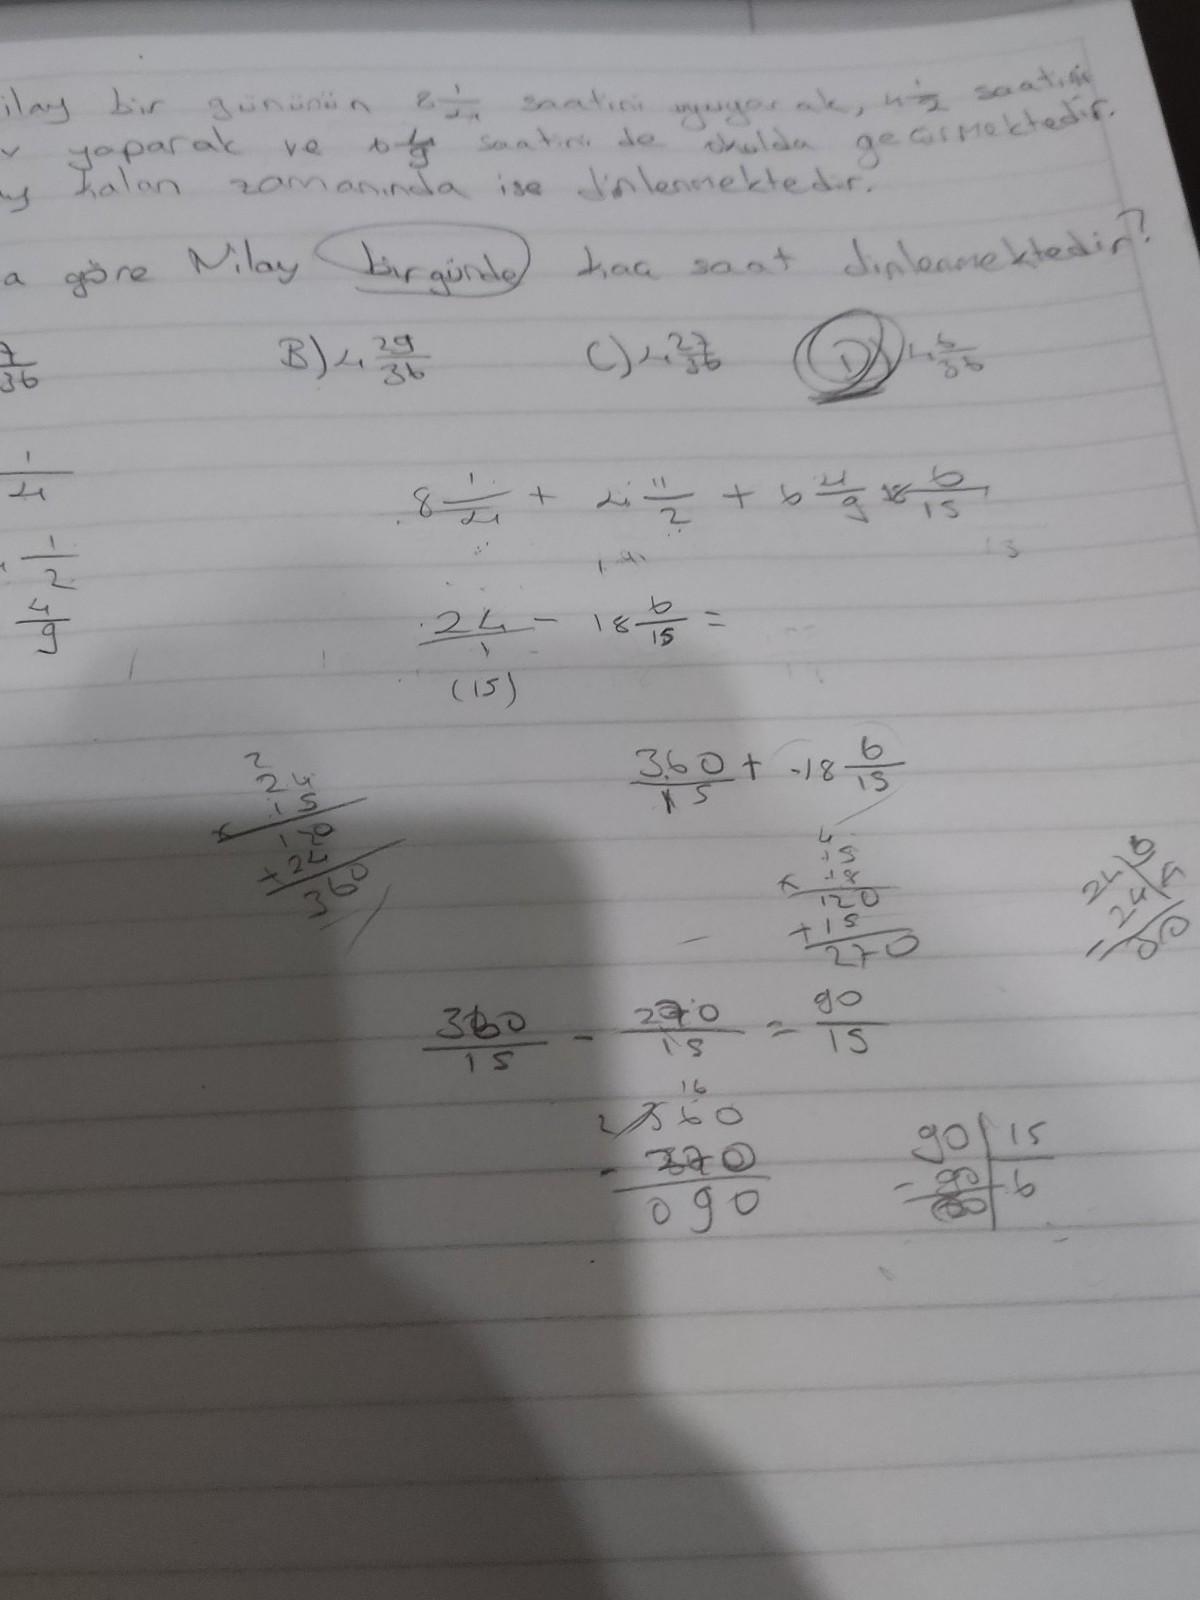 ilay bir gününün 8 1/4 saatini uyuyarak, 4 1/2 saatini
v yaparak ve 6 4/9 saatini de okulda geçirmektedir.
ay kalan zamanında ise dinlenmektedir.
a göre Nilay bir günde kaç saat dinlenmektedir?
7/36 B) 4 29/36 C) 4 27/36 D) 4 5/36
1/4
8 1/4 + 4 11/2 + 6 4/9 18 6/15
1/2
4/9
24/1 - 18 6/15 =
(15)
360/15 + -18 6/15
2
24
15
x
120
+24
360
4
15
18
x
120
+15
270
24 6
24 4
- 00
360/15 - 270/15 = 90/15
16
2 360
- 270
090
90 | 15
- 90 | 6
00